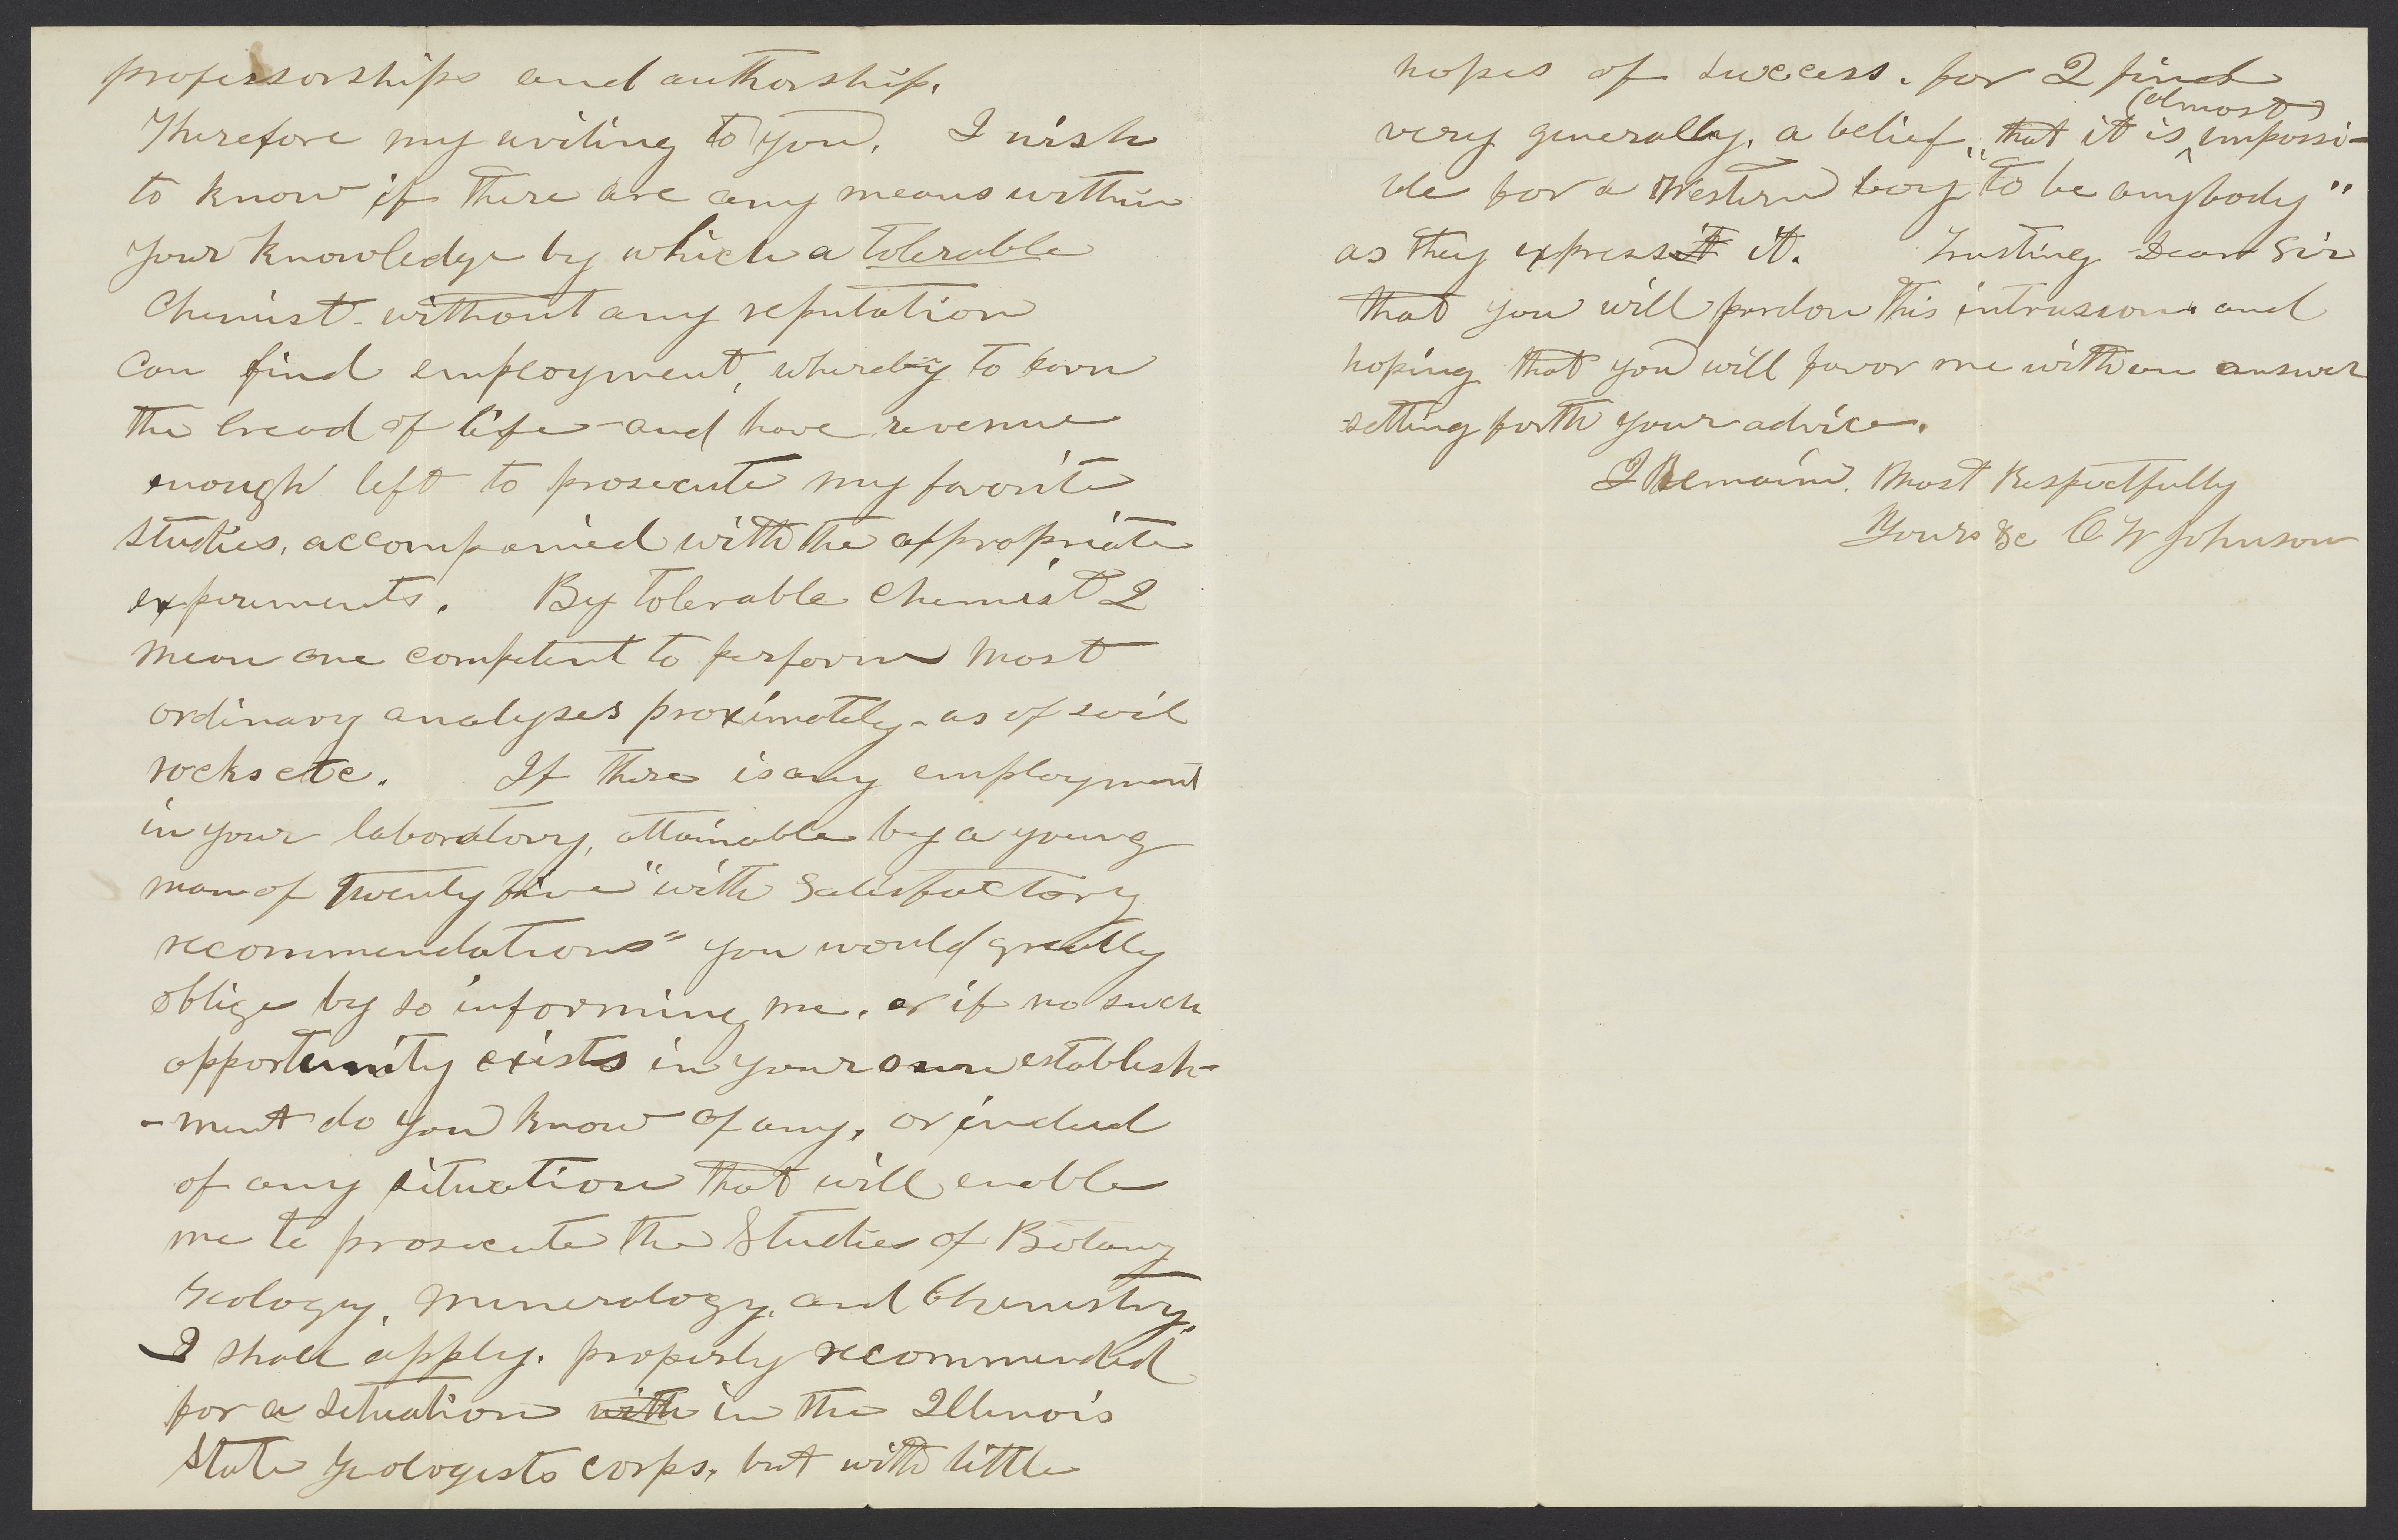 professorships and authorship.
Therefore my writing to you. I wish
to know if there are any means within
your knowledge by which a tolerable
Chemist - without any reputation
can find employment, whereby to earn
the bread of life - and have revenue
enough left to prosecute my favorite
studies, accompanied with the appropriate
experiments. By tolerable Chemist I
mean one competent to perform most
ordinary analyses proximately - as of soil
rocks etc. If there is any employment
in your laboratory, attainable by a young
man of twenty five "with satisfactory
recommendations" you would greatly
oblige by so informing me. or if no such
opportunity exists in your own establish-
-ment do you know of any, or indeed
of any situation that will enable
me to prosecute the Studies of Botany
Geology, Mineralogy, and Chemistry.
I shall apply. properly recommended
for a situation with in the Illinois
State Geologists corps, but with little
hopes of success. for I find
(almost)
very generally, a belief, that it is ^ impossi-
ble for a Western boy "to be anybody"
as they express it it. Trusting Dear Sir
that you will pardon this intrusion and
hoping that you will favor me with an answer
setting forth your advice.
I Remain, Most Respectfully
Yours &c C W Johnson